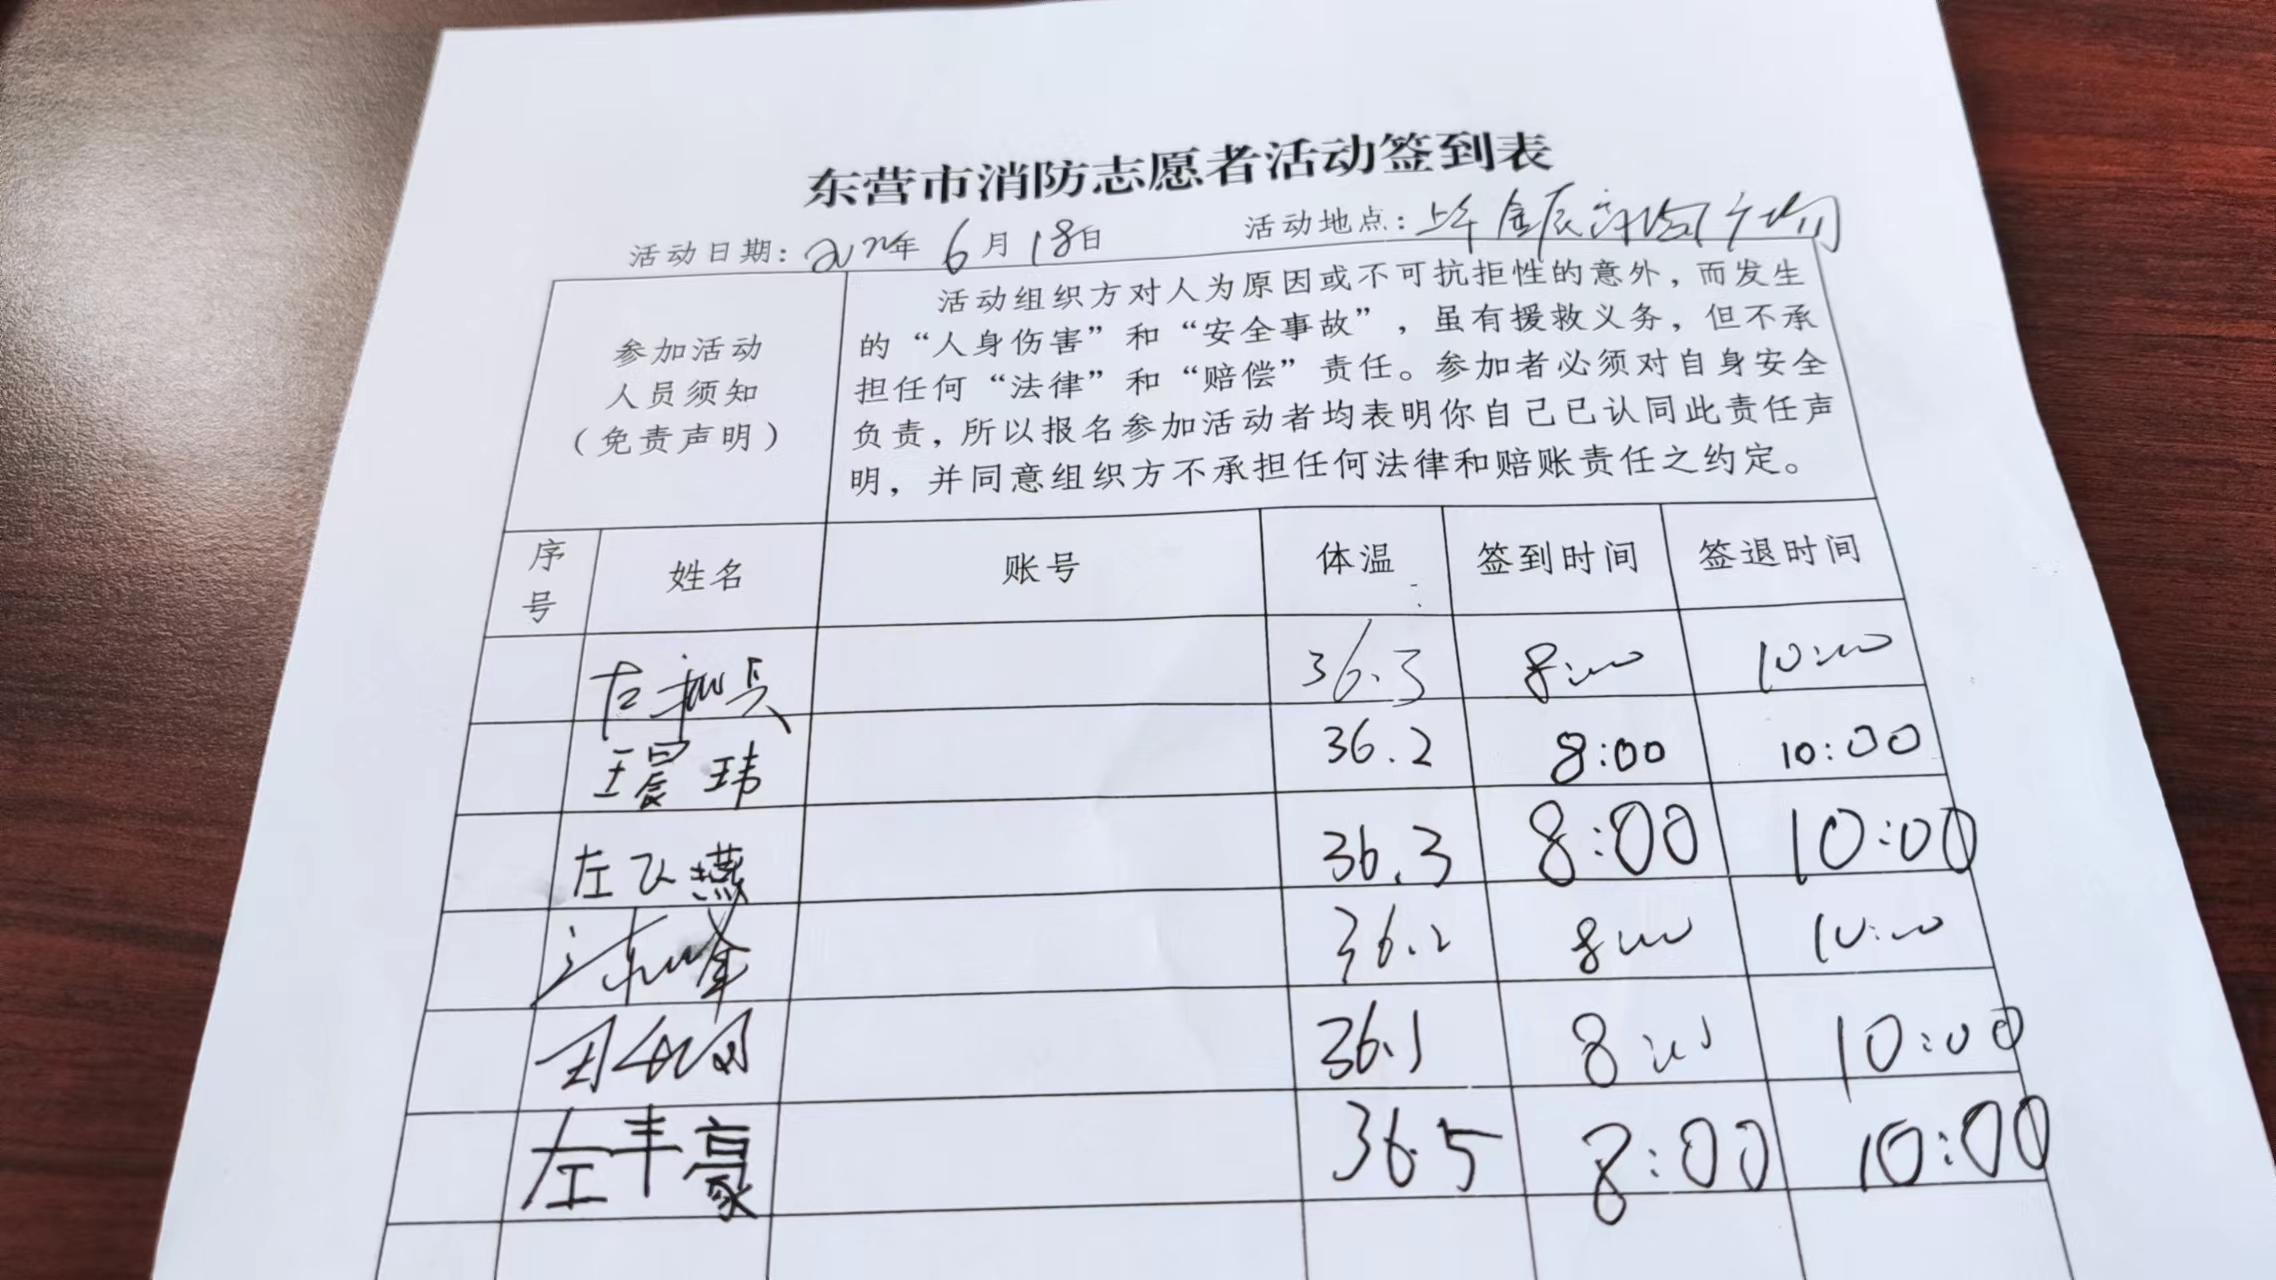 东营市消防志愿者活动签到表
活动日期：年 6月18日 活动地点：
参加活动
人员须知
（免责声明）
活动组织方对人为原因或不可抗拒性的意外，而发生
的“人身伤害”和“安全事故”，虽有援救义务，但不承
担任何“法律”和“赔偿”责任。参加者必须对自身安全
负责，所以报名参加活动者均表明你自己已认同此责任声
明，并同意组织方不承担任何法律和赔账责任之约定。
序号 姓名 账号 体温 签到时间 签退时间
36.3 8:00 10:00
玮 36.2 8:00 10:00
左飞燕 36.3 8:00 10:00
峰 36.2 8:00 10:00
36.1 8:00 10:00
左丰豪 36.5 8:00 10:00